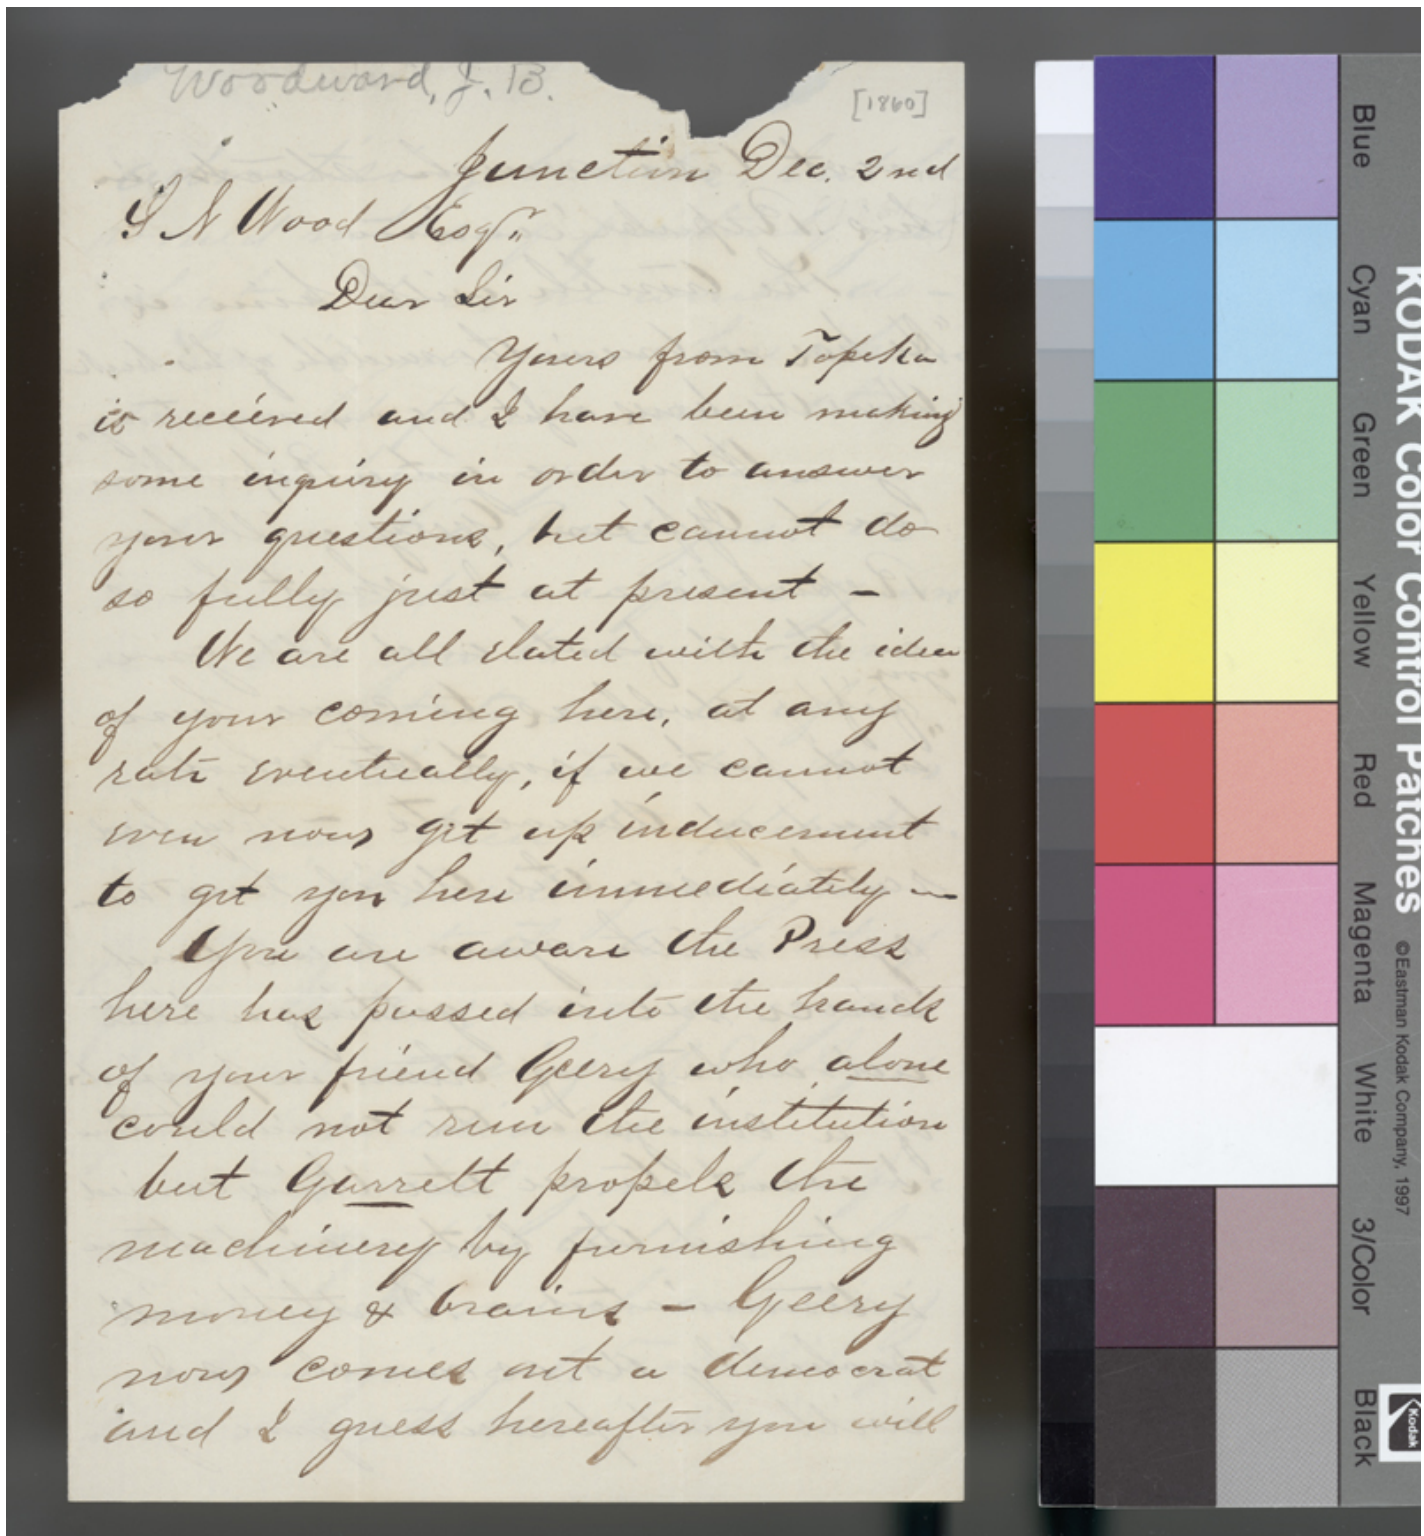 Woodward, J. B.
[1860]
Junction Dec. 2nd
S N Wood Esqr"
Dear Sir
Yours from Topeka
is received and I have been making
some inquiry in order to answer
your questions, but cannot do
so fully just at present –
We are all elated with the idea
of your coming here, at any
rate eventually, if we cannot
even now get up inducement
to get you here immediately –
You are aware the Press
here has passed into the hands
of your friend Geery who alone
could not run the institution
but Garrett propels the
machinery by furnishing
money & brains – Geery
now comes out a democrat
and I guess hereafter you will
KODAK Color Control Patches
©Eastman Kodak Company, 1997
Blue
Cyan
Green
Yellow
Red
Magenta
White
3/Color
Black
Kodak